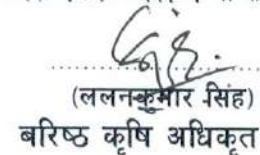 (ललनकुमार सिंह)
बरिष्ठ कृषि अधिकृत